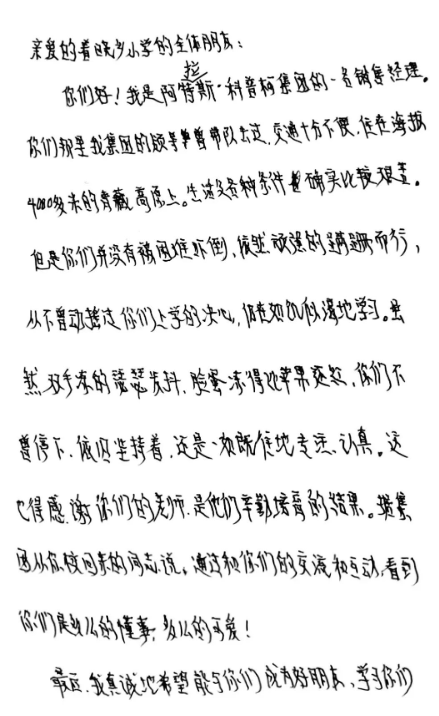 亲爱的着晓乡小学的全体朋友：
你们好！我是阿特拉斯·科普柯集团的一名销售经理。
你们那里我集团的领导曾带队去过，交通十分不便，住在海拔
4000多米的青藏高原上。生活及各种条件也确实比较艰苦。
但是你们并没有被困难吓倒，依然顽强的蹒跚而行，
从不曾动摇过你们上学的决心，仍在如饥似渴地学习。虽
然双手冻的瑟瑟发抖，脸蛋冻得比苹果还红，你们不
曾停下，依旧坚持着，还是一如既往地专注、认真。这
也得感谢你们的老师，是他们辛勤培育的结果。据集
团从你校回来的同志说，通过和你们的交流和互动，看到
你们是多么的懂事，多么的可爱！
最后，我真诚地希望能与你们成为好朋友，学习你们